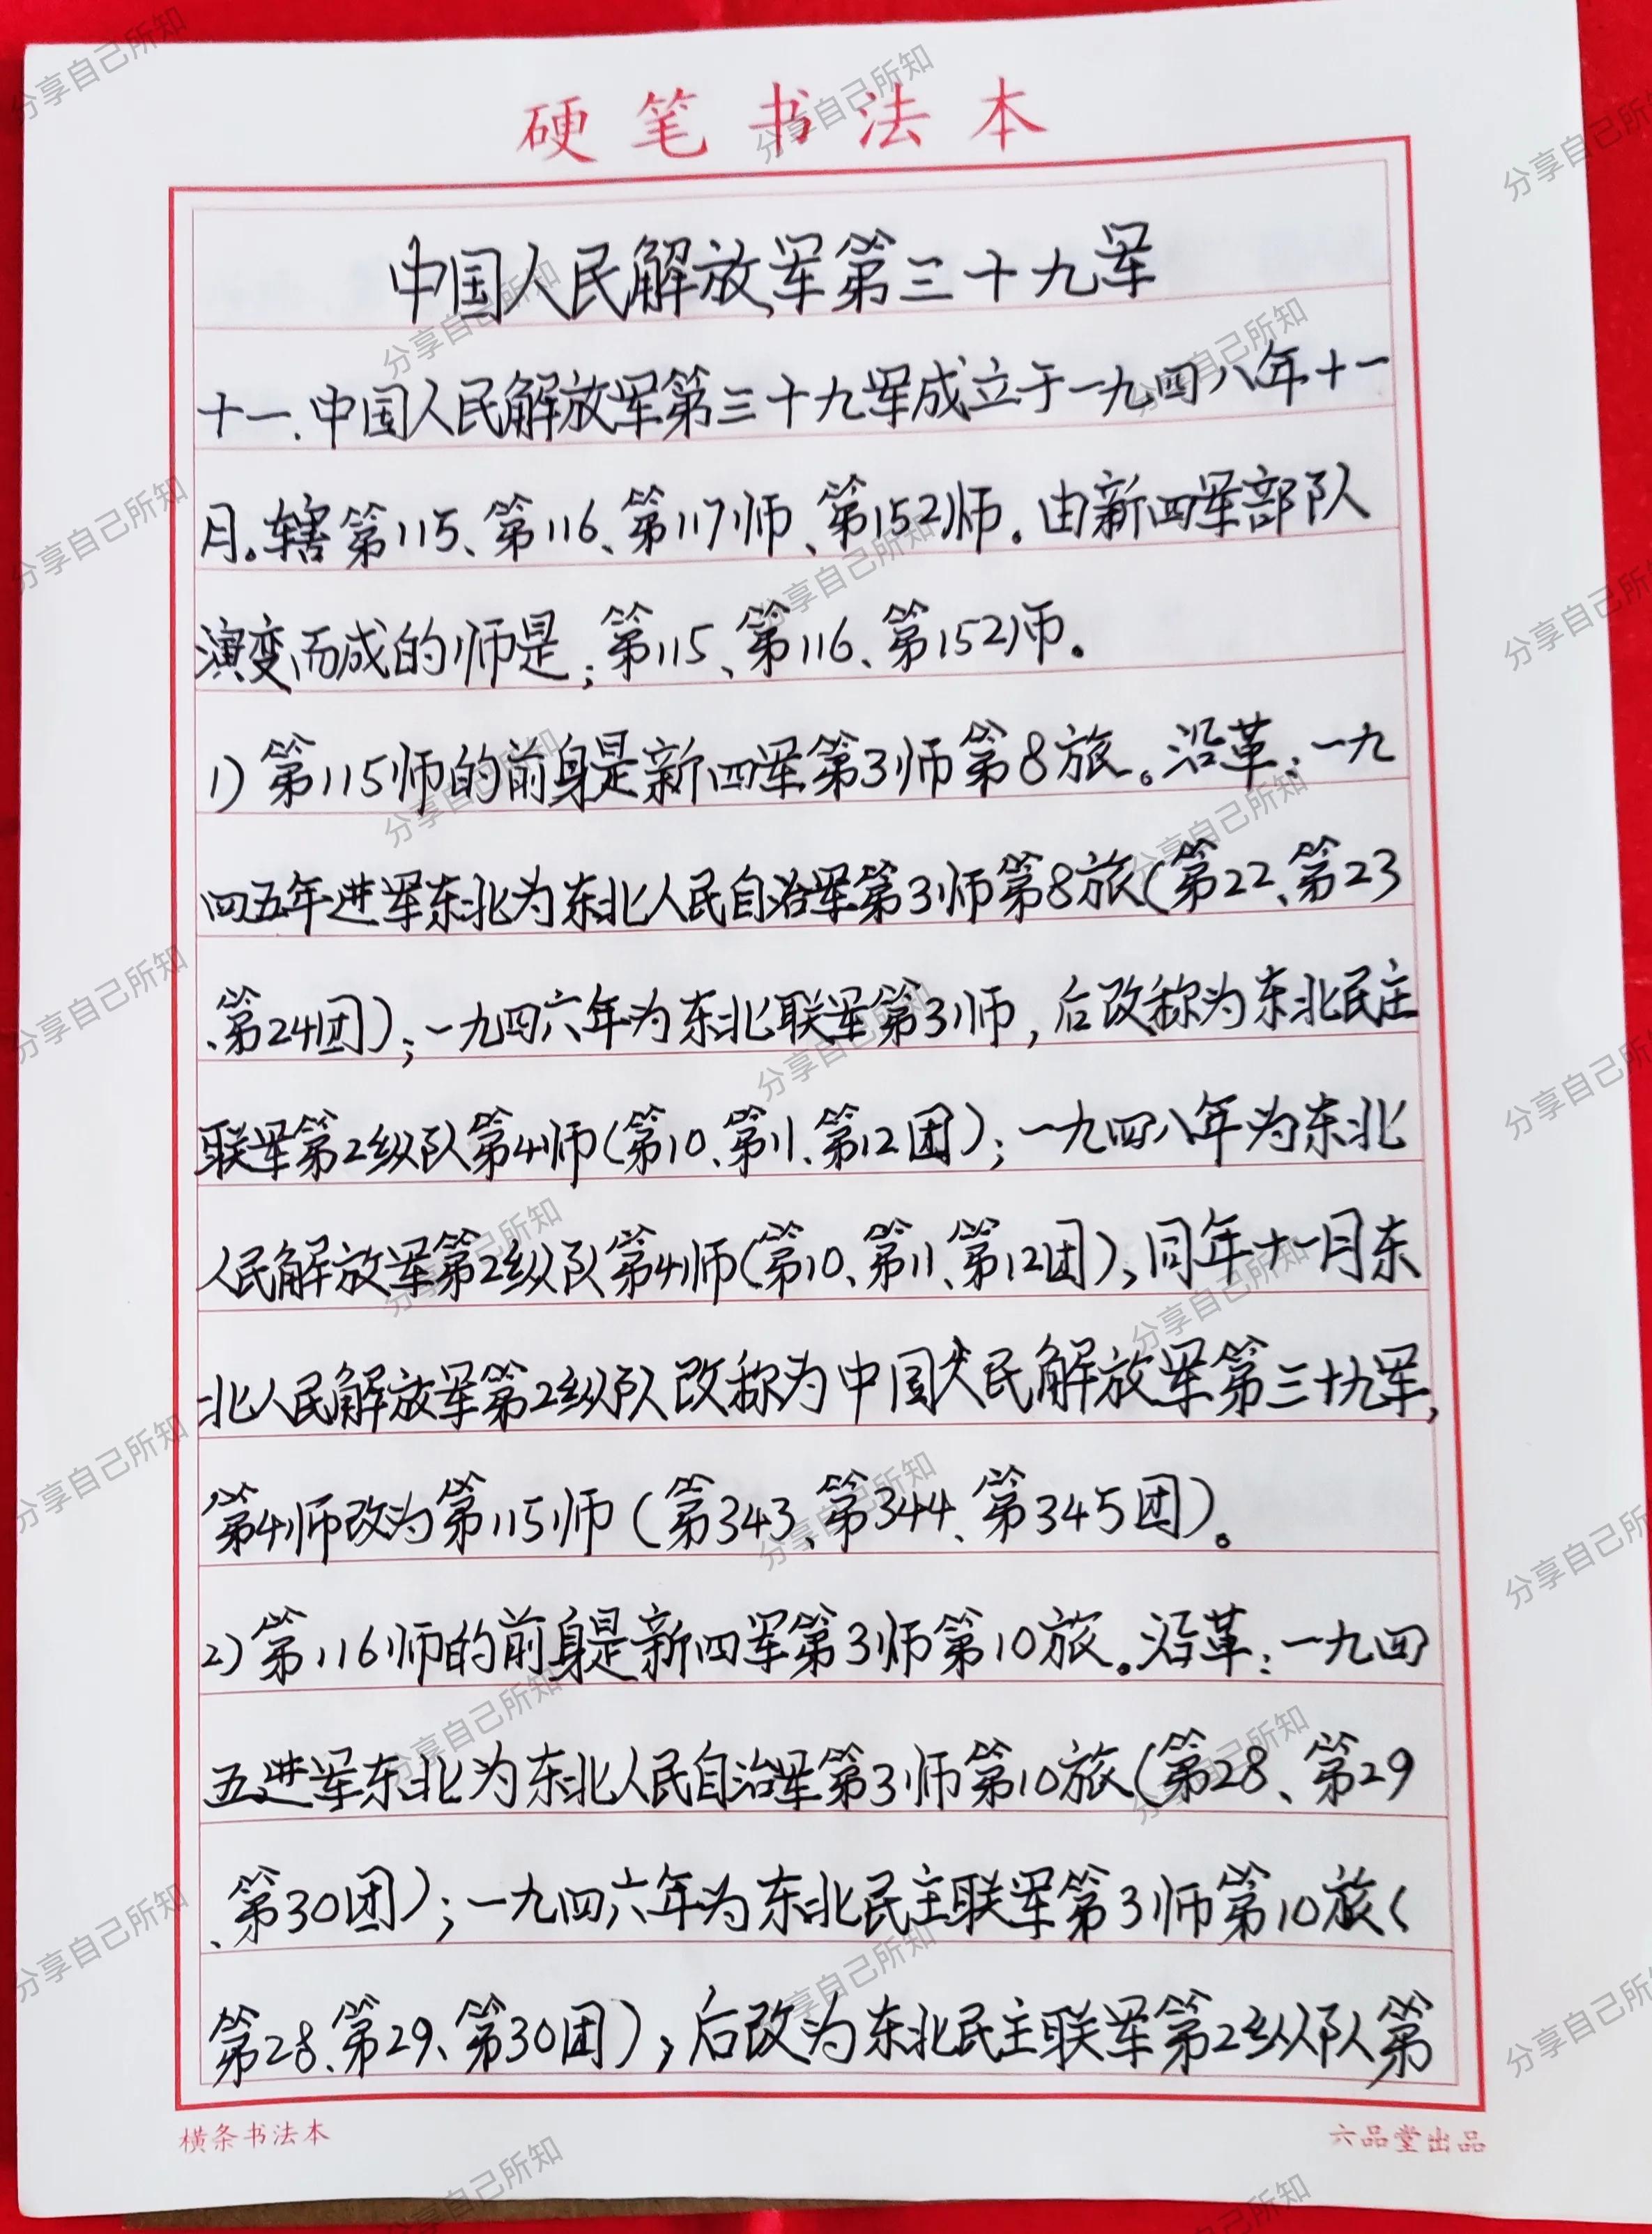 硬笔书法本
中国人民解放军第三十九军
十一、中国人民解放军第三十九军成立于一九四八年十一
月。辖第115、第116、第117师、第152师。由新四军部队
演变而成的师是:第115、第116、第152师。
1)第115师的前身是新四军第3师第8旅。沿革:一九
四五年进军东北为东北人民自治军第3师第8旅(第22、第23
、第24团);一九四六年为东北联军第3师,后改称为东北民主
联军第2纵队第4师(第10、第11、第12团);一九四八年为东北
人民解放军第2纵队第4师(第10、第11、第12团),同年十一月东
北人民解放军第2纵队改称为中国人民解放军第三十九军,
第4师改为第115师(第343、第344、第345团)。
2)第116师的前身是新四军第3师第10旅。沿革:一九四
五进军东北为东北人民自治军第3师第10旅(第28、第29
、第30团);一九四六年为东北民主联军第3师第10旅(
第28、第29、第30团);后改为东北民主联军第2纵队第
横条书法本
六品堂出品
分享自己所知